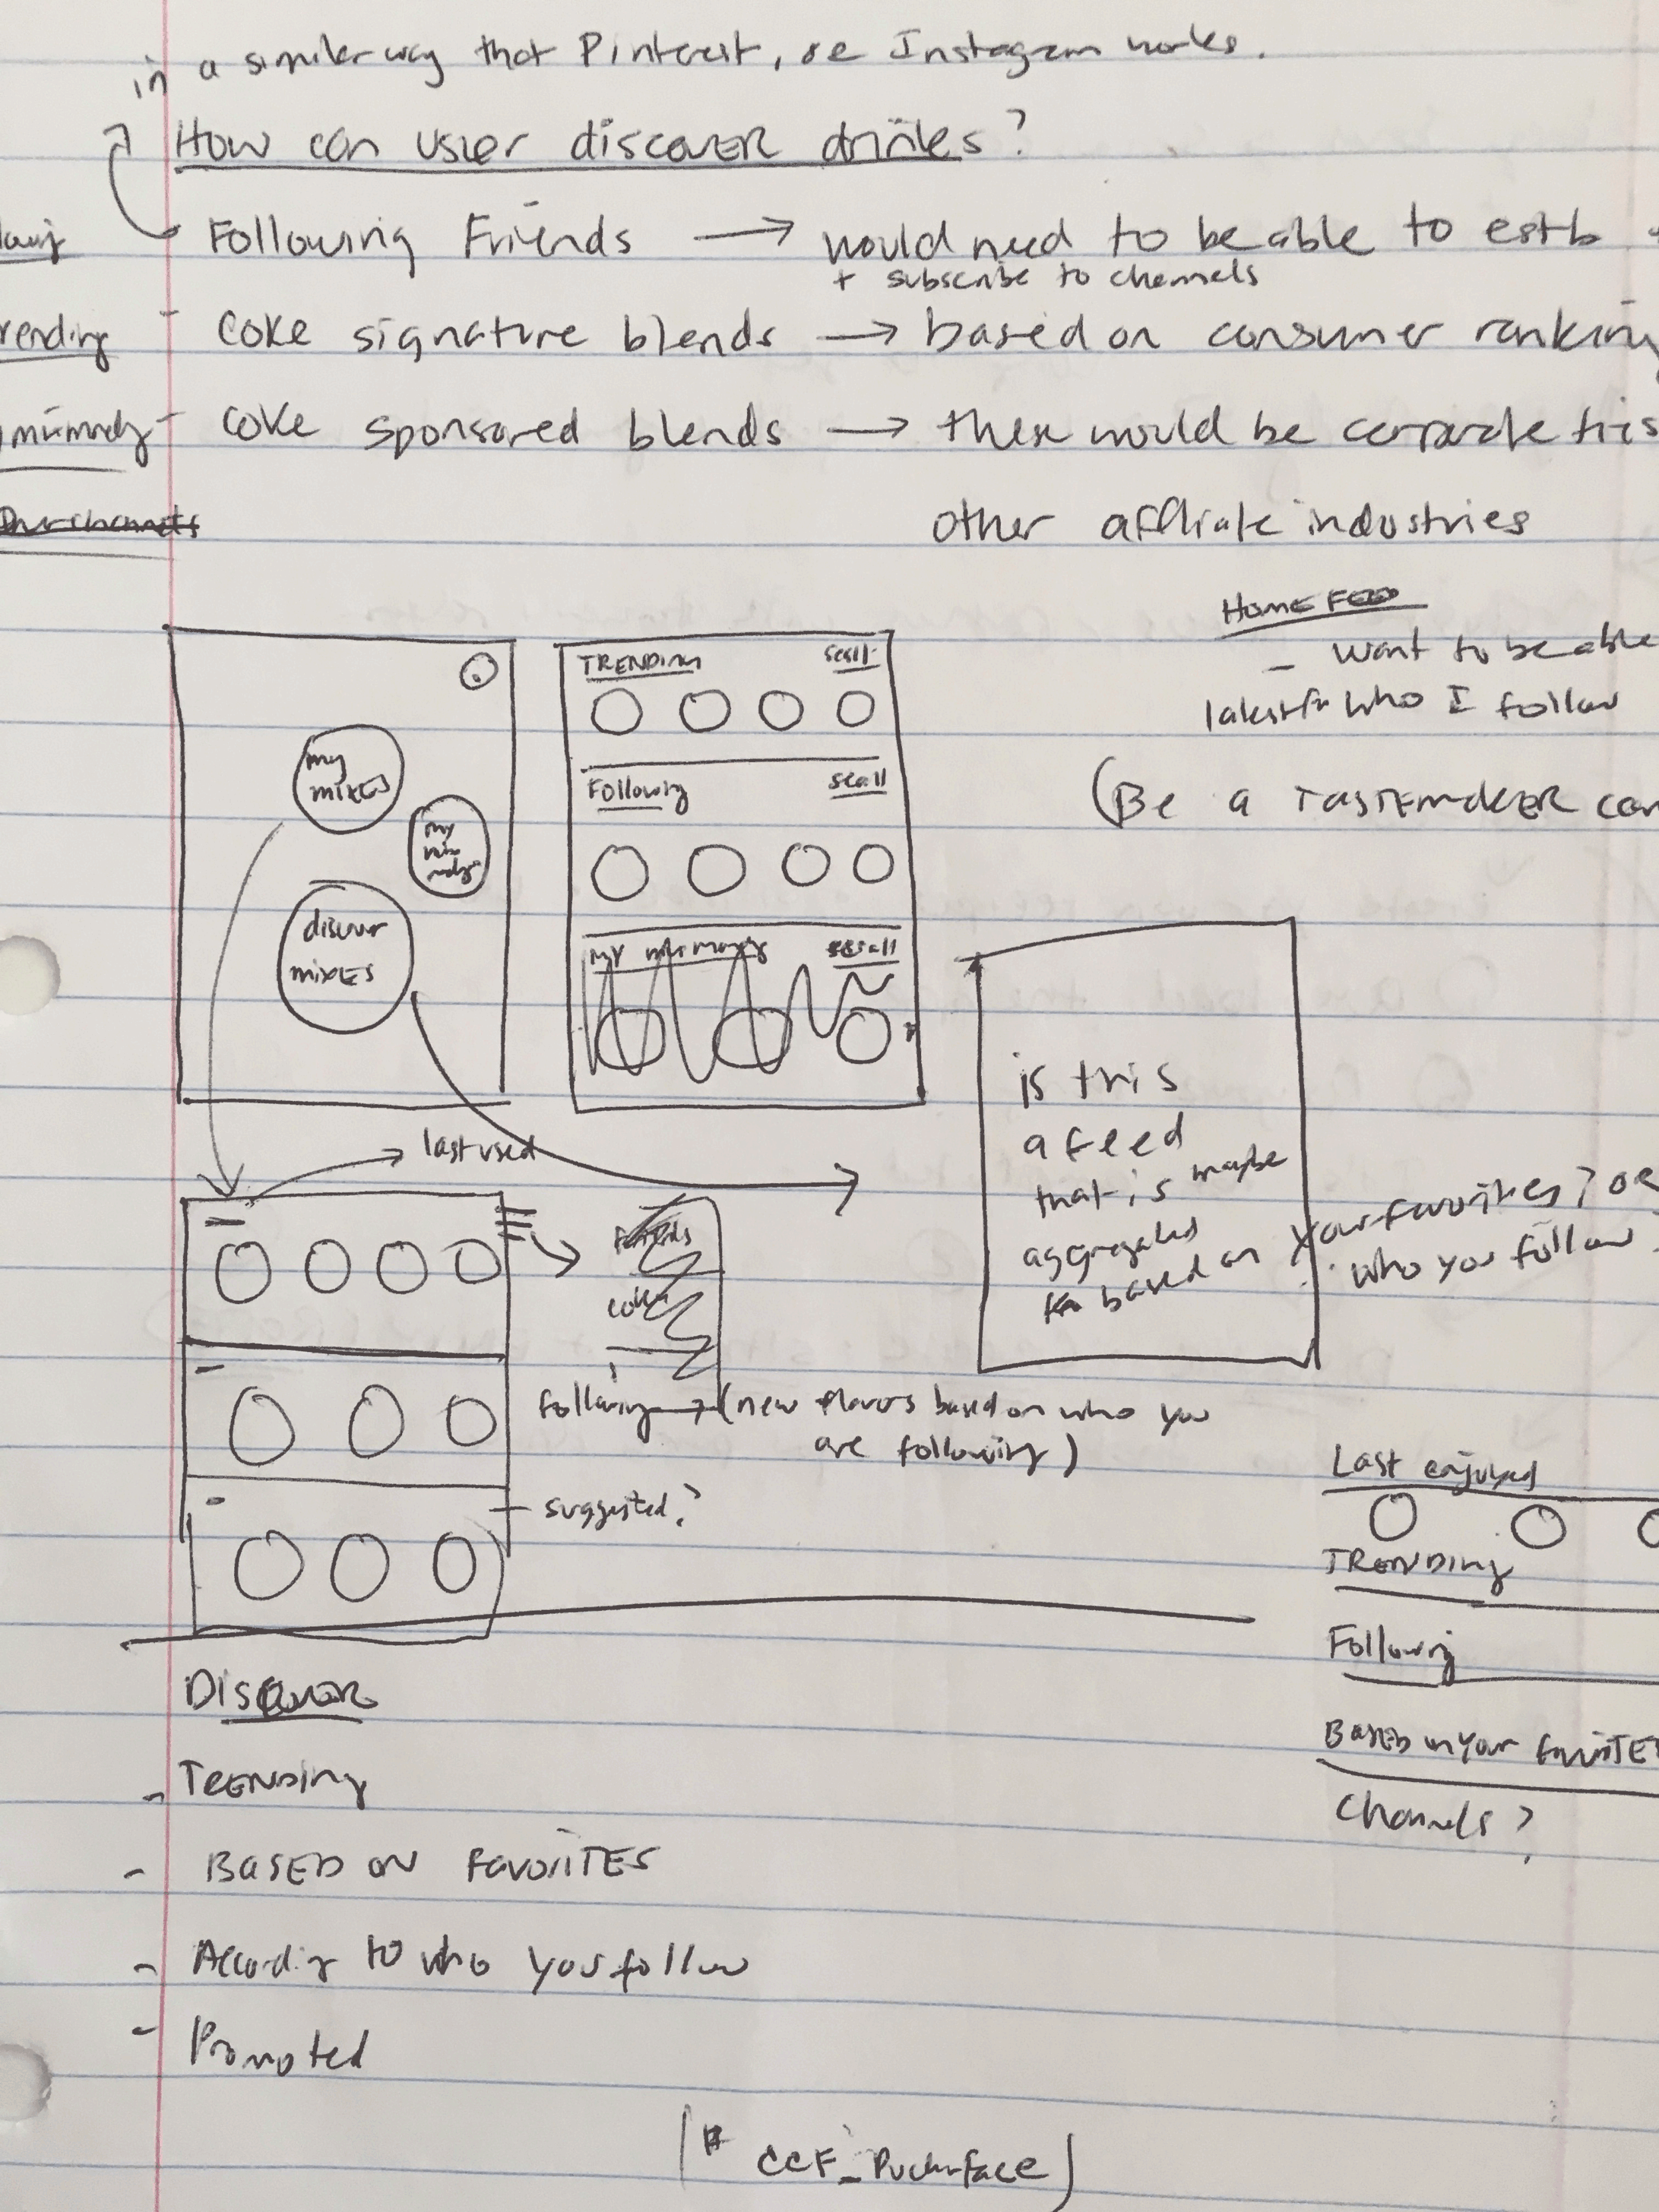 in a similar way that Pinterest, or Instagram works.
How can user discover drinks?
Following Friends → would need to be able to estb
+ subscribe to channels
rending - coke signature blends → based on consumer ranking
coke sponsored blends → these would be
other affliate industries
HOME FEED
- want to be able
who I follow
(Be a TASTEMAKER
TRENDING
Following
my
mixes
my
discover
mixes
my
last used
is this
a feed
that is maybe
aggregated
based on your favorites? or
who you follow
Following → (new flavors based on who you
are following)
suggested?
Last enjoyed
TRENDING
Following
BASED on your FAVORITE
Channels?
DISCOVER
- TRENDING
- BASED ON FAVORITES
- According to who you follow
- Promoted